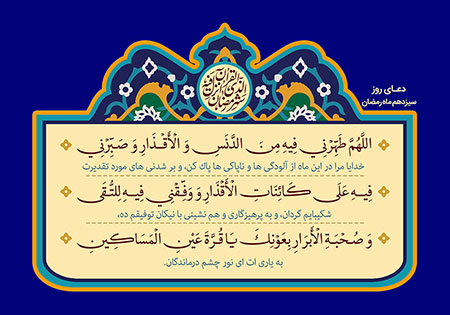 دعـای روز
سیزدهم ماه رمضان
شهر رمضان الذی انزل فیه القرآن
اللَّهُمَّ طَهِّرْنِي فِيهِ مِنَ الدَّنَسِ وَ الْأَقْذَارِ وَ صَبِّرْنِي
خدایا مرا در این ماه از آلودگی ها و ناپاکی ها پاک کن، و بر شدنی های مورد تقدیرت
فِيهِ عَلَى كَائِنَاتِ الْأَقْدَارِ وَ وَفِّقْنِي فِيهِ لِلتُّقَى
شکیبایم گردان، و به پرهیزگاری و هم نشینی با نیکان توفیقم ده،
وَ صُحْبَةِ الْأَبْرَارِ بِعَوْنِكَ يَا قُرَّةَ عَيْنِ الْمَسَاكِينِ
به یاری ات ای نور چشم درماندگان.